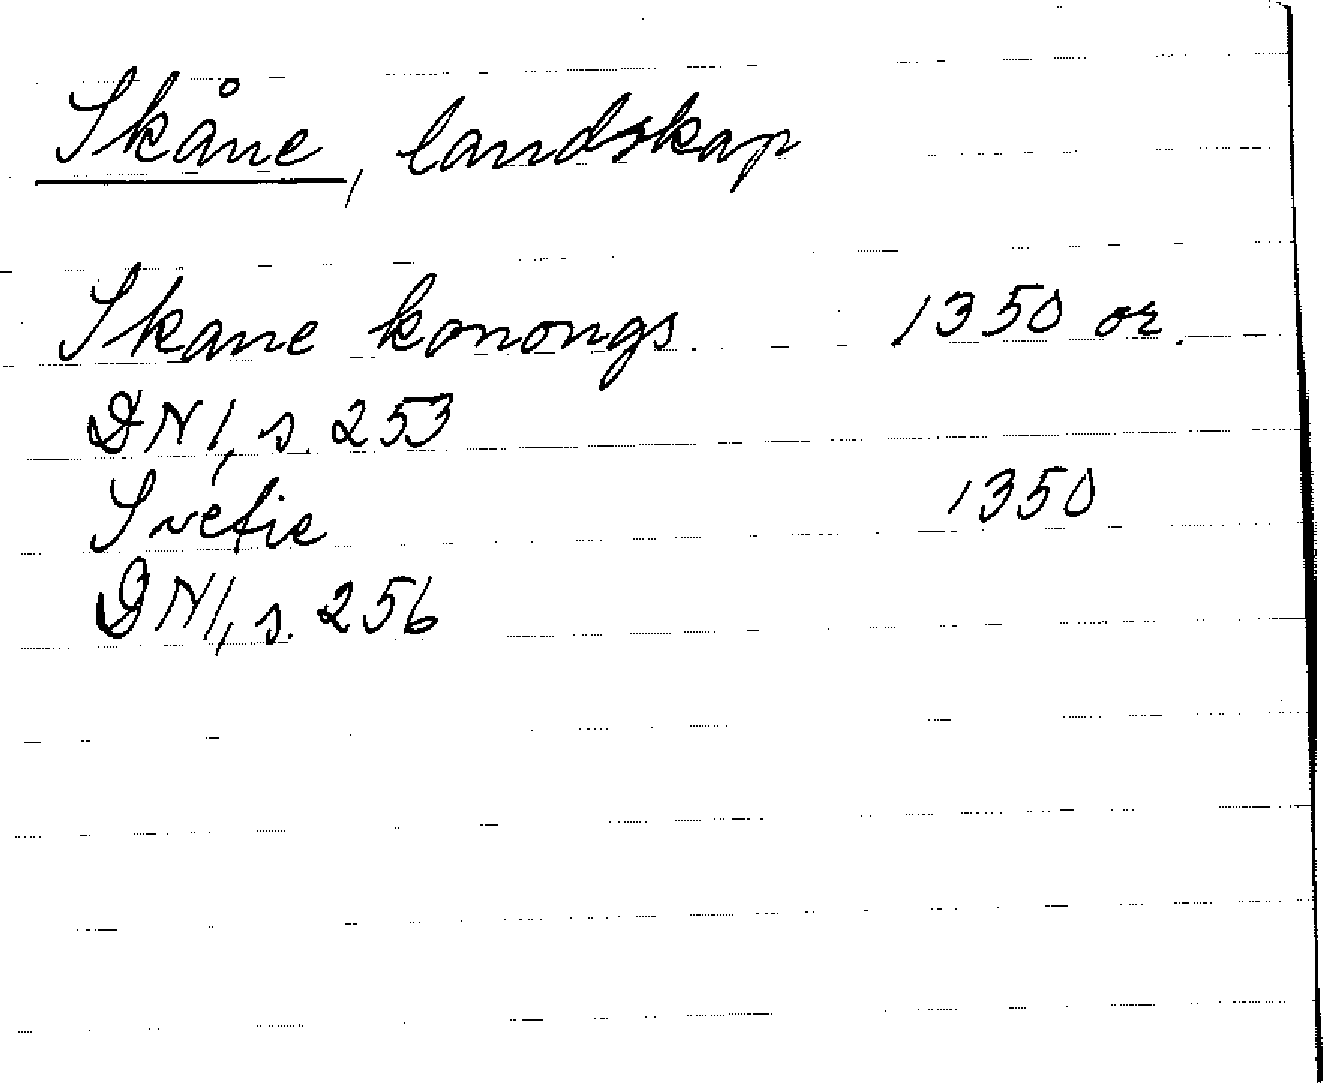 Skåne, landskap
Skane konongs 1350 or.
DN 1, s. 253
Svefie 1350
DN 1, s. 256